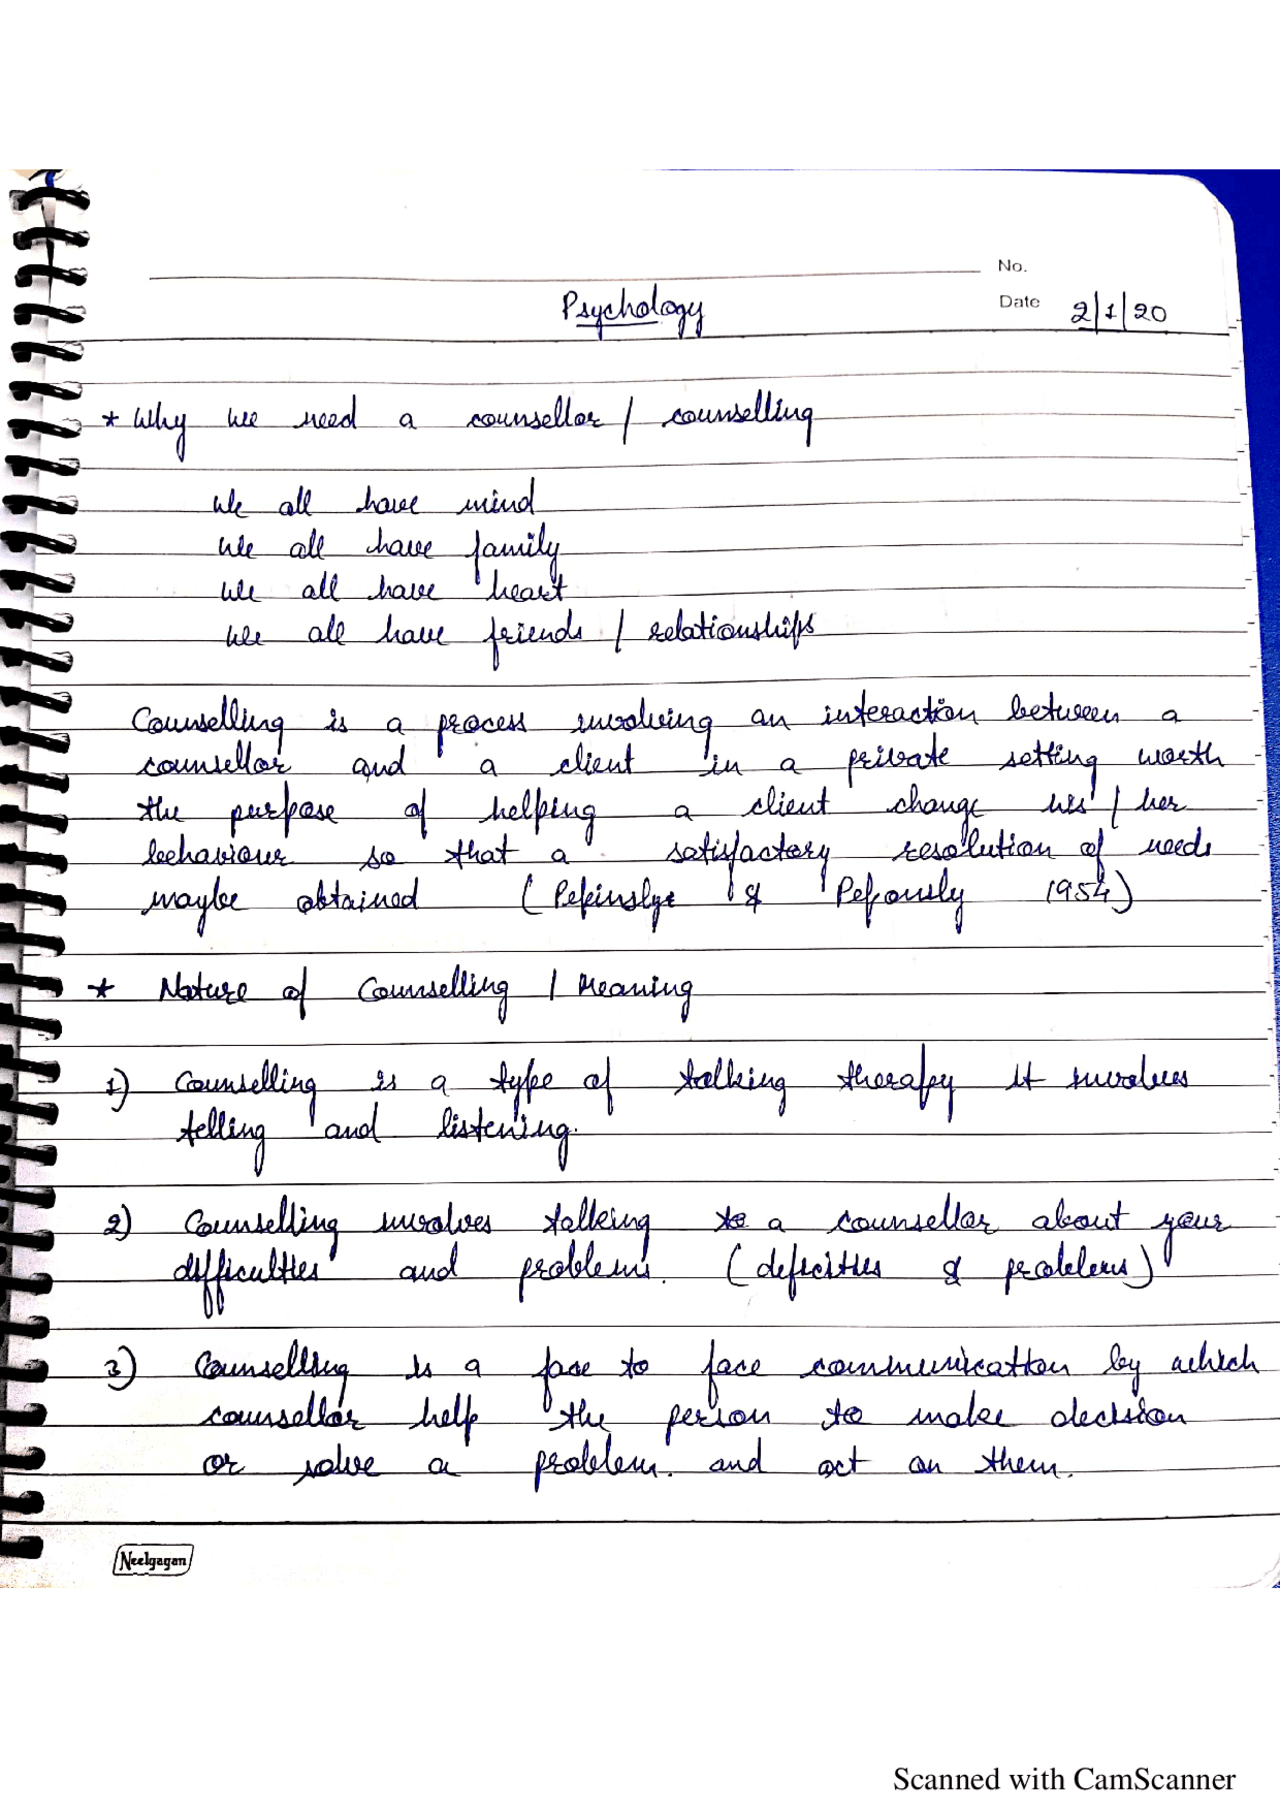 No.
Psychology
Date 2/1/20
* Why we need a counsellor / counselling
We all have mind
We all have family
We all have heart
We all have friends / relationships
Counselling is a process involving an interaction between a
counsellor and a client in a private setting worth
the purpose of helping a client change his / her
behaviour so that a satisfactory resolution of needs
maybe obtained ( & 1954)
* Nature of Counselling / Meaning
1) Counselling is a type of talking therapy it involves
telling and listening.
2) Counselling involves talking to a counsellor about your
difficulties and problems. (deficities & problems)
3) Counselling is a face to face communication by which
counsellor help the person to make decision
or solve a problem. and act on them.
Neelgagan
Scanned with CamScanner